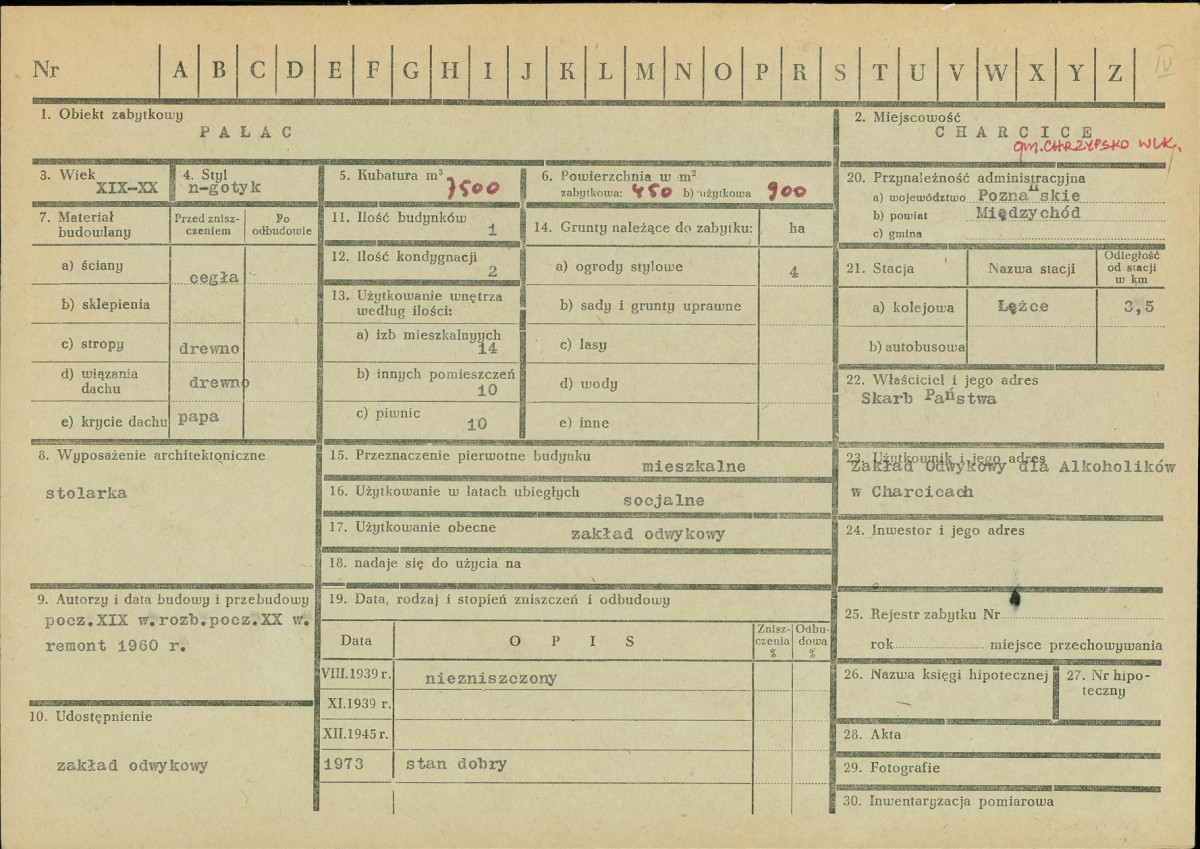 Nr A B C D E F G H I J K L M N O P R S T U V W X Y Z IV
1. Obiekt zabytkowy
PAŁAC
2. Miejscowość
CHARCICE
gm. CHRZYPSKO WLK.
3. Wiek
XIX-XX
4. Styl
n-gotyk
5. Kubatura m³
7500
6. Powierzchnia w m²
zabytkowa: 450 b) użytkowa 900
7. Materiał budowlany
Przed zniszczeniem
Po odbudowie
a) ściany cegła
b) sklepienia
c) stropy drewno
d) wiązania dachu drewno
e) krycie dachu papa
8. Wyposażenie architektoniczne
stolarka
9. Autorzy i data budowy i przebudowy
pocz.XIX w.rozb.pocz.XX w.
remont 1960 r.
10. Udostępnienie
zakład odwykowy
11. Ilość budynków
1
12. Ilość kondygnacji
2
13. Użytkowanie wnętrza
według ilości:
a) izb mieszkalnych
14
b) innych pomieszczeń
10
c) piwnic
10
14. Grunty należące do zabytku: ha
a) ogrody stylowe 4
b) sady i grunty uprawne
c) lasy
d) wody
e) inne
15. Przeznaczenie pierwotne budynku
mieszkalne
16. Użytkowanie w latach ubiegłych
socjalne
17. Użytkowanie obecne
zakład odwykowy
18. nadaje się do użycia na
19. Data, rodzaj i stopień zniszczeń i odbudowy
Data OPIS Zniszczenia % Odbudowa %
VIII.1939 r. niezniszczony
XI.1939 r.
XII.1945 r.
1973 stan dobry
20. Przynależność administracyjna
a) województwo Pozna"skie
b) powiat Międzychód
c) gmina
21. Stacja Nazwa stacji Odległość od stacji w km
a) kolejowa Łężce 3,5
b) autobusowa
22. Właściciel i jego adres
Skarb Państwa
23. Użytkownik i jego adres
Zakład Odwykowy dla Alkoholików
w Charcicach
24. Inwestor i jego adres
25. Rejestr zabytku Nr
rok miejsce przechowywania
26. Nazwa księgi hipotecznej
27. Nr hipoteczny
28. Akta
29. Fotografie
30. Inwentaryzacja pomiarowa